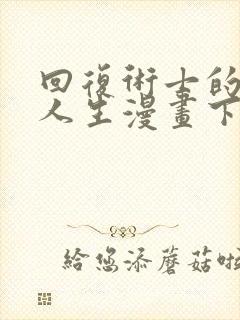 回復術士的
人生漫畫下
給您添蘑菇啦